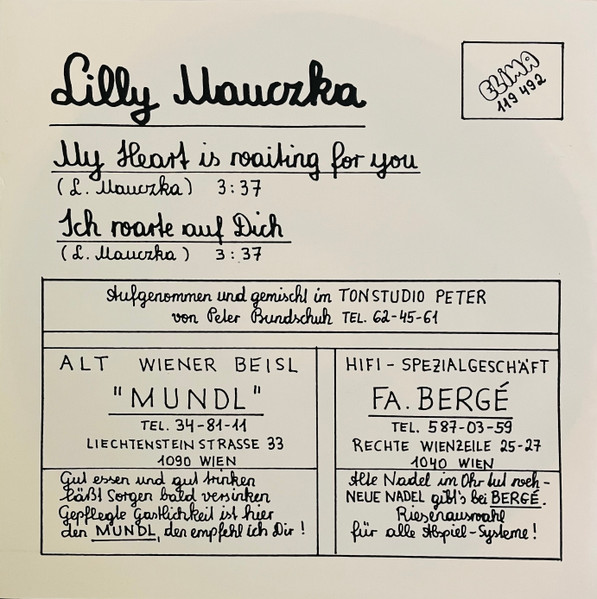 Lilly Mauczka
ELIMA
119 492
My Heart is waiting for you
(L. Mauczka) 3:37
Ich warte auf Dich
(L. Mauczka) 3:37
Aufgenommen und gemischt im TONSTUDIO PETER
von Peter Bundschuh TEL. 62-45-61
ALT WIENER BEISL
"MUNDL"
TEL. 34-81-11
LIECHTENSTEINSTRASSE 33
1090 WIEN
Gut essen und gut trinken
läßt Sorgen bald versinken
Gepflegte Gastlichkeit ist hier
den MUNDL, den empfehl ich Dir!
HIFI-SPEZIALGESCHÄFT
FA. BERGÉ
TEL. 587-03-59
RECHTE WIENZEILE 25-27
1040 WIEN
Alte Nadel im Ohr tut weh-
NEUE NADEL gibt's bei BERGÉ.
Riesenauswahl
für alle Abspiel-Systeme!